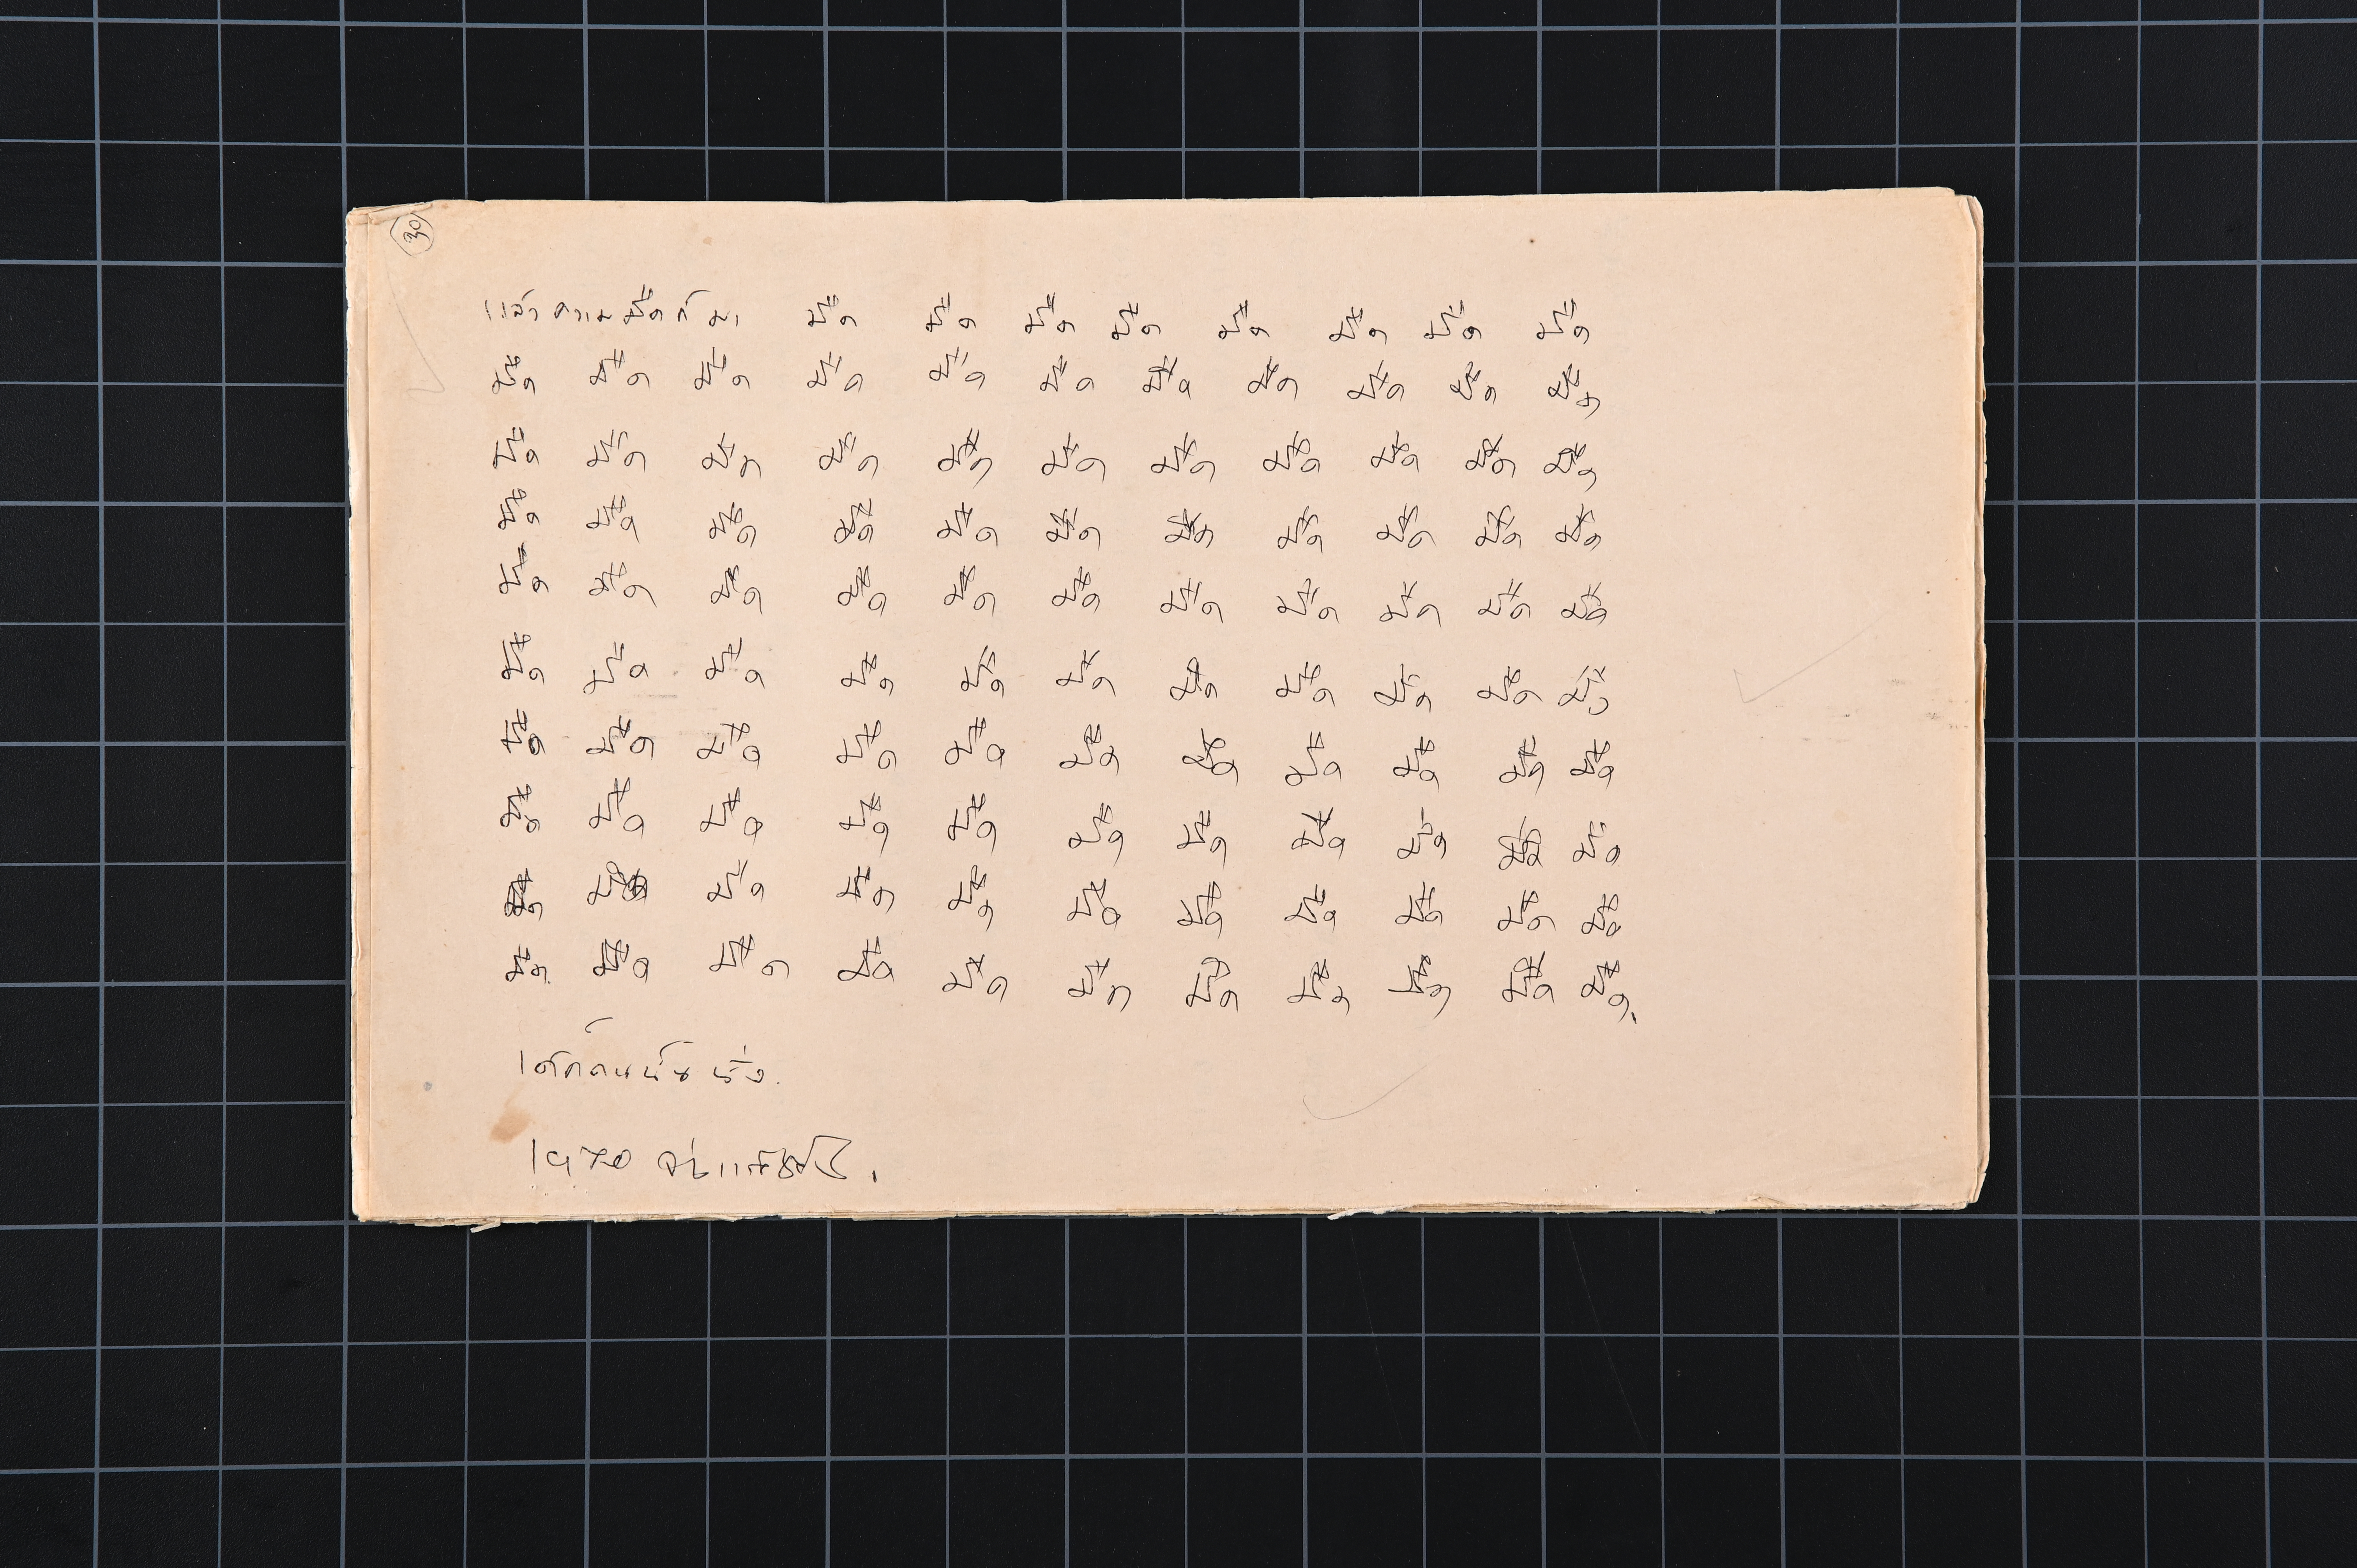 30
แล้วความมืดก็มา มืด มืด มืด มืด มืด มืด มืด มืด
มืด มืด มืด มืด มืด มืด มืด มืด มืด มืด มืด
มืด มืด มืด มืด มืด มืด มืด มืด มืด มืด มืด
มืด มืด มืด มืด มืด มืด มืด มืด มืด มืด มืด
มืด มืด มืด มืด มืด มืด มืด มืด มืด มืด มืด
มืด มืด มืด มืด มืด มืด มืด มืด มืด มืด มืด
มืด มืด มืด มืด มืด มืด มืด มืด มืด มืด มืด
มืด มืด มืด มืด มืด มืด มืด มืด มืด มืด มืด
มืด มืด มืด มืด มืด มืด มืด มืด มืด มืด มืด
มืด มืด มืด มืด มืด มืด มืด มืด มืด มืด มืด
เด็กคนนั้นนิ่ง.
จ่างแซ่ตั้ง.